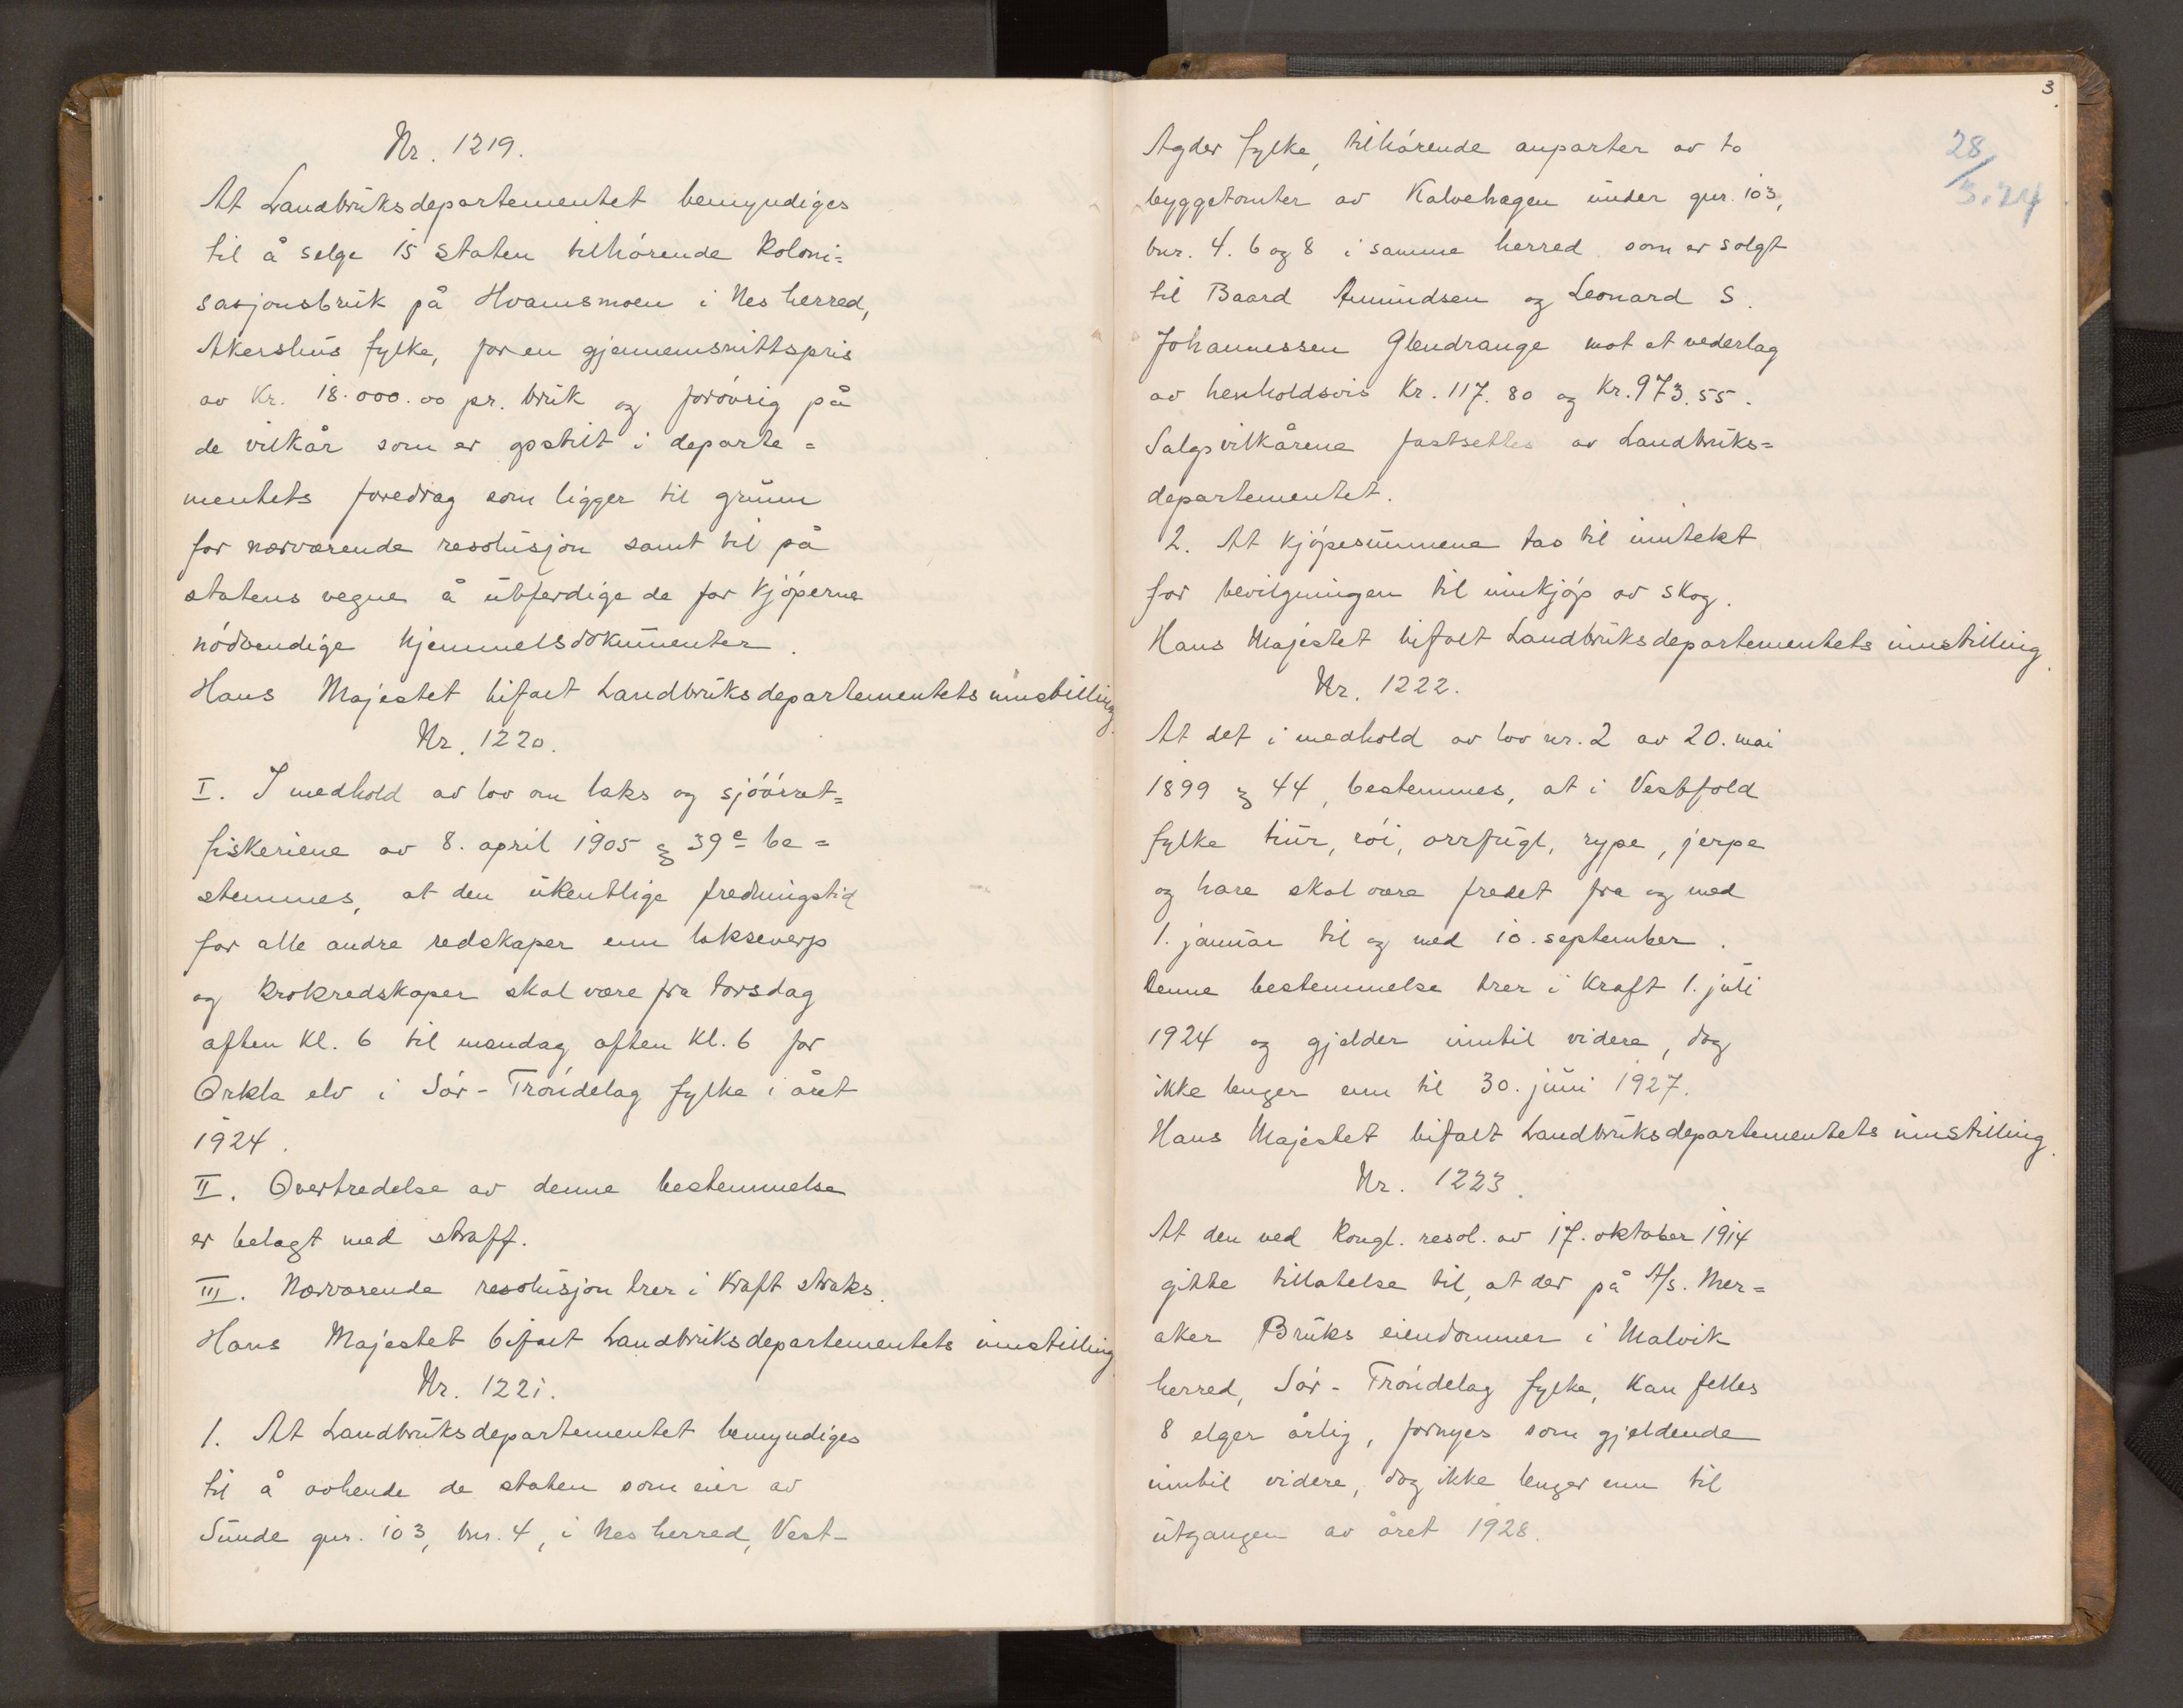 Nr. 1219.
At Landbruksdepartementet bemyndiges
til å selge 15 staten tilhørende koloni=
sasjonsbruk på Hvamsmoen i Nes herred,
Akershus fylke, for en gjennemsnittspris
av kr. 18.000.00 pr. bruk og forøvrig på
de vilkår som er opstilt i departe=
mentets foredrag som ligger til grunn
for nærværende resolusjon samt til på
statens vegne å utferdige de for kjøperne
nødvendige hjemmelsdokumenter.
Hans Majestet bifalt Landbruksdepartementets innstilling.
Nr. 1220.
I. I medhold av lov om laks og sjøørret=
fiskeriene av 8. april 1905 § 39e be=
stemmes, at den ukentlige fredningstid
for alle andre redskaper enn laksevarp
og krokredskaper skal være fra torsdag
aften kl. 6 til mandag aften kl. 6 for
Orkla elv i Sør-Trøndelag fylke i året
1924.
II. Overtredelse av denne bestemmelse
er belagt med straff.
III. Nærværende resolusjon trer i kraft straks.
Hans Majestet bifalt Landbruksdepartementets innstilling
Nr. 1221.
1. At Landbruksdepartementet bemyndiges
til å avhende de staten som eier av
Sunde gnr. 103, bnr. 4, i Nes herred, Vest-
3.
28/3.24
Agder fylke, tilhørende anparter av to
byggetomter av Kalvehagen under gnr. 103,
bnr. 4. 6 og 8 i samme herred som er solgt
til Baard Amundsen og Leonard S.
Johannessen Glendrange mot et vederlag
av henholdsvis kr. 117.80 og kr. 973.55.
Salgsvilkårene fastsettes av Landbruks=
departementet.
2. At kjøpesummene tas til inntekt
for bevilgningen til innkjøp av skog.
Hans Majestet bifalt Landbruksdepartementets innstilling.
Nr. 1222.
At det i medhold av lov nr. 2 av 20. mai
1899 § 44, bestemmes, at i Vestfold
fylke tiur, røi, orrfugl, rype, jerpe
og hare skal være fredet fra og med
1. januar til og med 10. september.
Denne bestemmelse trer i kraft 1. juli
1924 og gjelder inntil videre, dog
ikke lenger enn til 30. juni 1927.
Hans Majestet bifalt Landbruksdepartementets innstilling.
Nr. 1223.
At den ved kongl. resol. av 17. oktober 1914
gitte tillatelse til, at der på A/s. Mer=
aker Bruks eiendommer i Malvik
herred, Sør-Trøndelag fylke, kan felles
8 elger årlig, fornyes som gjeldende
inntil videre, dog ikke lenger enn til
utgangen av året 1928.